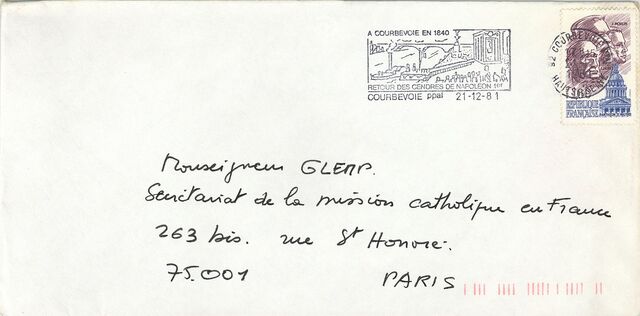 A COURBEVOIE EN 1840
RETOUR DES CENDRES DE NAPOLÉON 1er
COURBEVOIE ppal 21-12-81
92 COURBEVOIE
RÉPUBLIQUE
FRANÇAISE
Monseigneur GLEMP.
Secrétariat de la mission catholique en France
263 bis. rue St Honoré.
75.001 PARIS